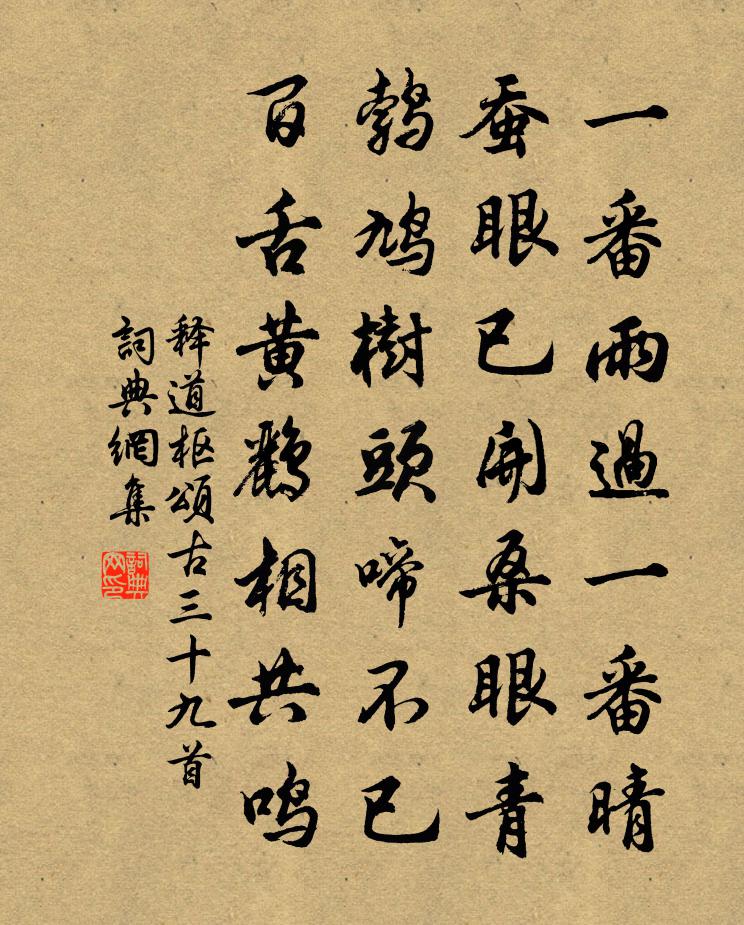 一番雨過一番晴
蚕眼已開桑眼青
鹁鸠樹頭啼不已
百舌黄鸝相共鸣
释道枢頌古三十九首
詞典網集
詞典网印